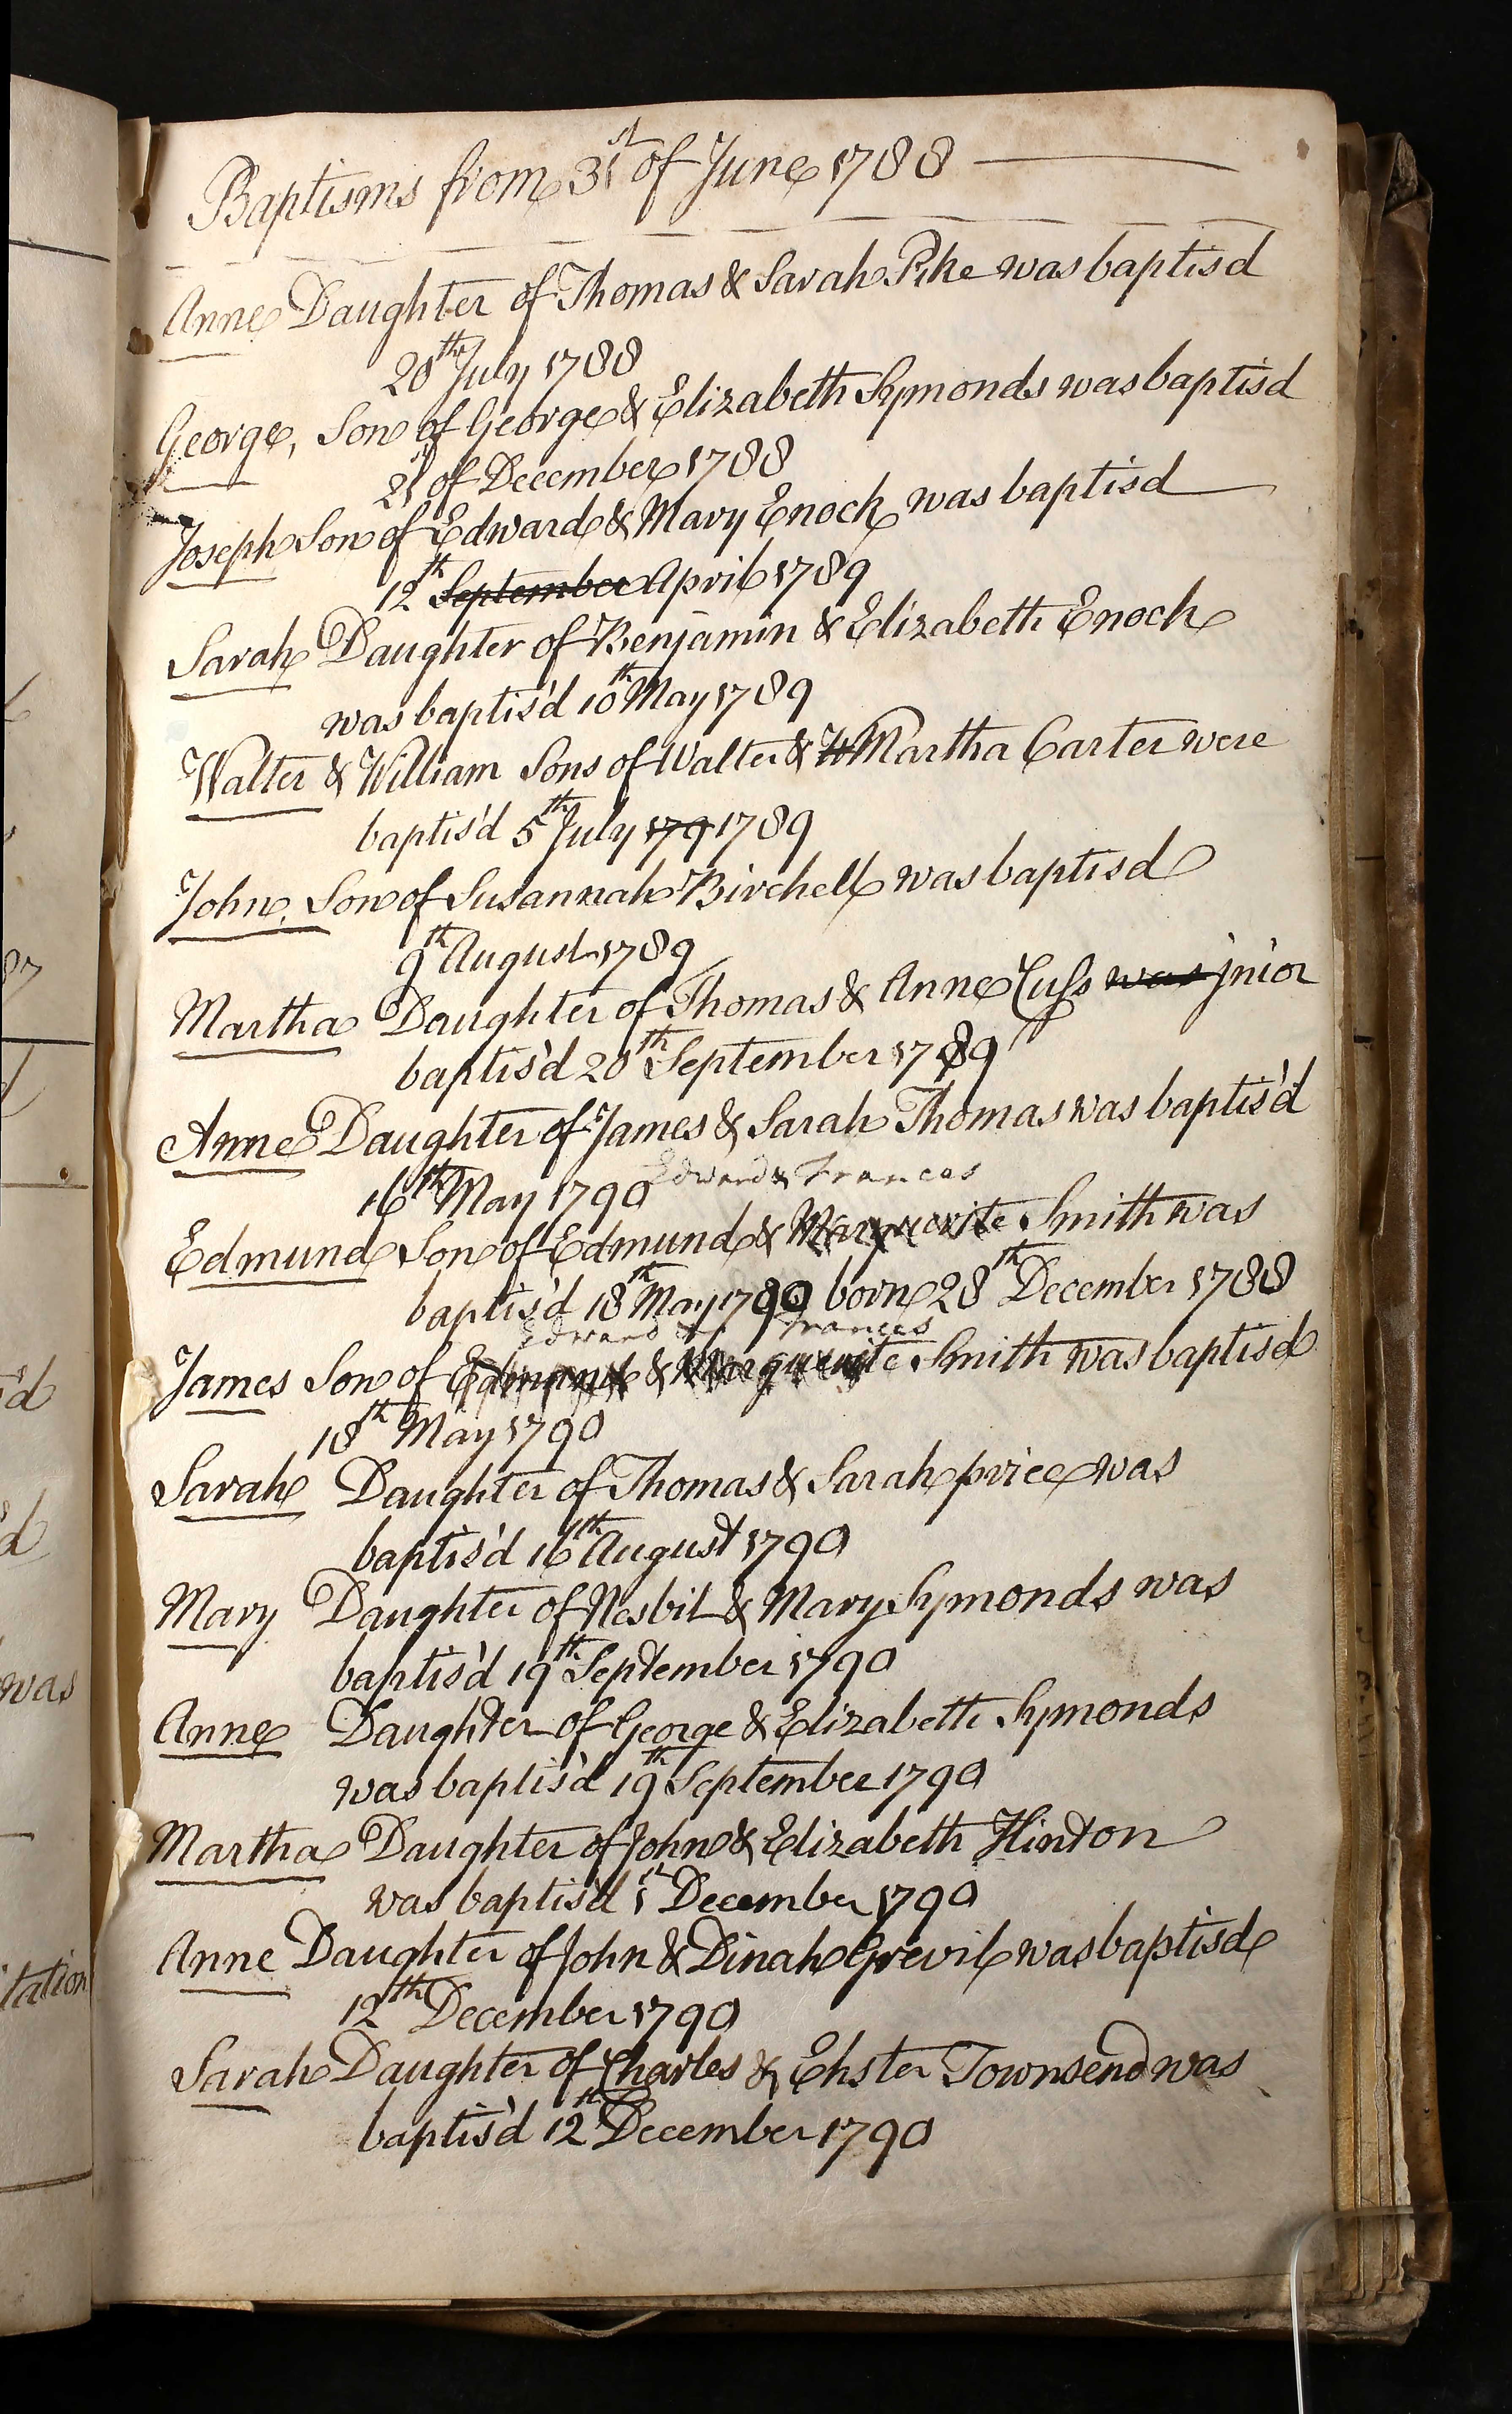 Baptisms from 31st of June 1788
Anne Daughter of Thomas & Sarah Pike was baptisd
20th July 1788
George, Son of George & Elizabeth Symonds was baptisd
21st of December 1788
Joseph Son of Edward & Mary Enoch was baptisd
12th September April 1789
Sarah Daughter of Benjamin & Elizabeth Enoch
was baptis'd 10th May 1789
Walter & William Sons of Walter & W Martha Carter were
baptis'd 5th July 179 1789
John, Son of Susannah Birchell was baptisd
9th August 1789
Martha Daughter of Thomas & Anne Cuss was jnior
baptis'd 20th September 1789
Anne Daughter of James & Sarah Thomas was baptis'd
16th May 1790
Edward & Frances
Edmund Son of Edmund & Marguerite Smith was
baptis'd 18th May 1790 born 28th December 1788
Edward & Frances
James Son of Edmund & Marguerite Smith was baptisd
18th May 1790
Sarah Daughter of Thomas & Sarah price was
baptis'd 16th August 1790
Mary Daughter of Nesbit & Mary Symonds was
baptis'd 19th September 1790
Anne Daughter of George & Elizabeth Symonds
was baptis'd 19th September 1790
Martha Daughter of John & Elizabeth Hinton
was baptis'd 1st December 1790
Anne Daughter of John & Dinah Grevil was baptisd
12th December 1790
Sarah Daughter of Charles & Ehster Townsend was
baptis'd 12th December 1790
87
'd
'd
was
tation